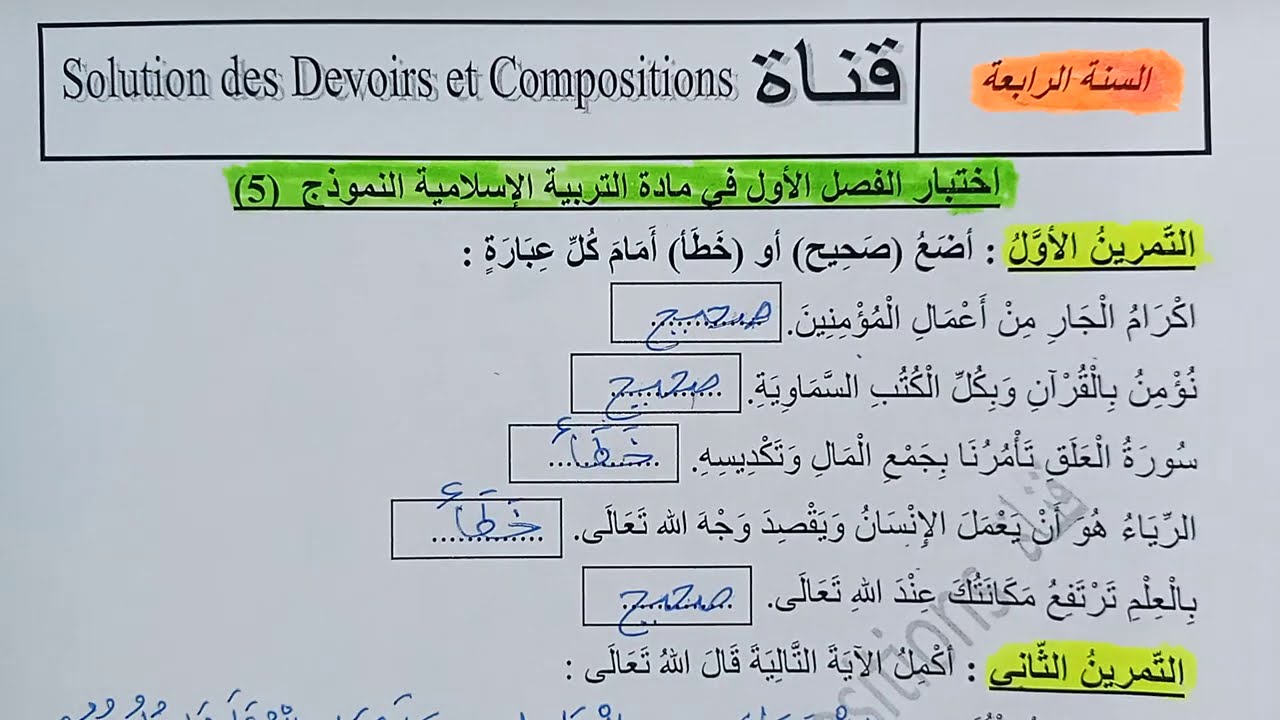 السنة الرابعة
قناة Solution des Devoirs et Compositions
اختبار الفصل الأول في مادة التربية الإسلامية النموذج (5)
التّمرينُ الأوَّلُ : أضَعُ (صَحِيح) أو (خَطَأ) أَمَامَ كُلِّ عِبَارَةٍ :
اكْرَامُ الْجَارِ مِنْ أَعْمَالِ الْمُؤْمِنِينَ. صحيح
نُؤْمِنُ بِالْقُرْآنِ وَبِكُلِّ الْكُتُبِ السَّمَاوِيَةِ. صحيح
سُورَةُ الْعَلَقِ تَأْمُرُنَا بِجَمْعِ الْمَالِ وَتَكْدِيسِهِ. خَطَأ
الرِّيَاءُ هُوَ أَنْ يَعْمَلَ الإِنْسَانُ وَيَقْصِدَ وَجْهَ الله تَعَالَى. خَطَأ
بِالْعِلْمِ تَرْتَفِعُ مَكَانَتُكَ عِنْدَ اللهِ تَعَالَى. صحيح
التّمرينُ الثّاني : أكْمِلُ الآيَةَ التَّالِيَةَ قَالَ اللهُ تَعَالَى :